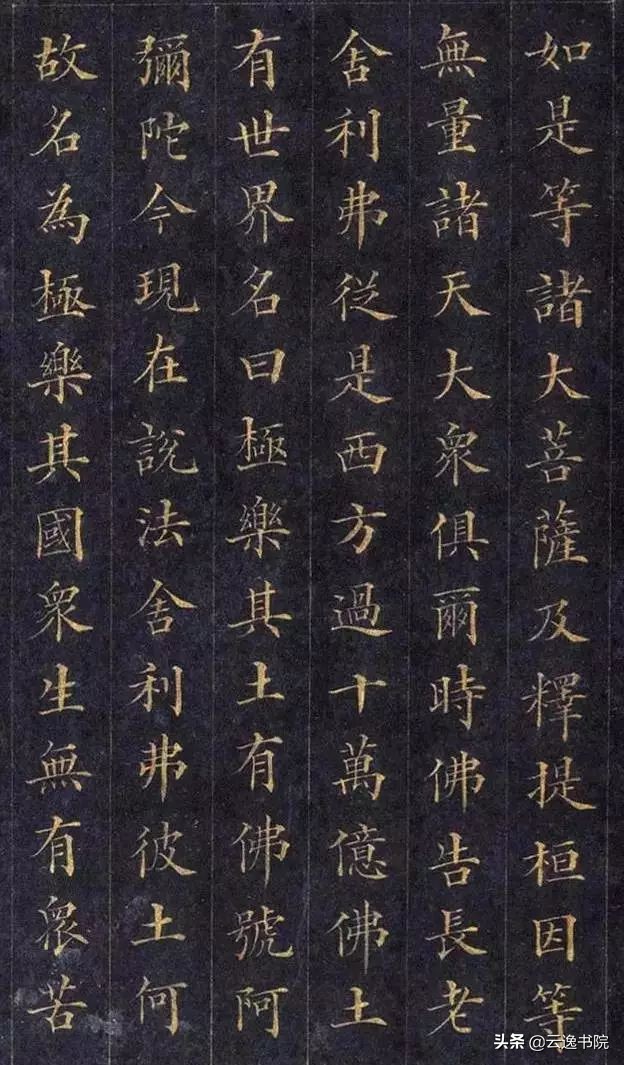 如是等諸大菩薩及釋提桓因等
無量諸天大衆俱爾時佛告長老
舍利弗從是西方過十萬億佛土
有世界名曰極樂其土有佛號阿
彌陀今現在說法舍利弗彼土何
故名為極樂其國衆生無有衆苦
头条 @云逸书院